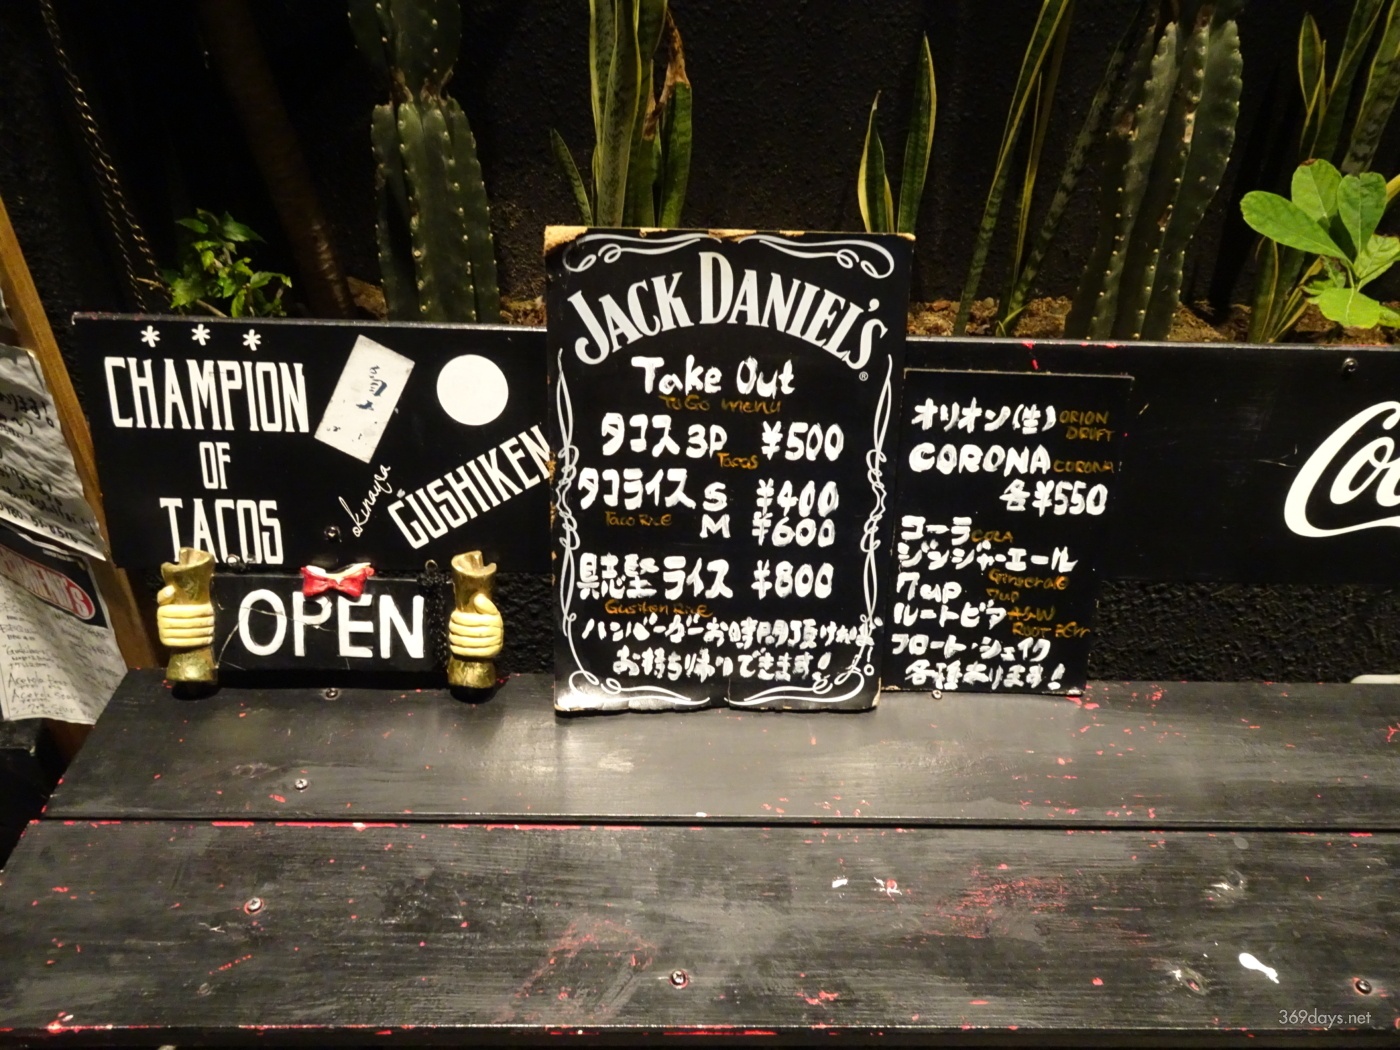 * * *
CHAMPION
OF
TACOS
okinawa
GUSHIKEN
OPEN
JACK DANIEL'S®
Take Out
To Go menu
タコス 3P ¥500
Tacos
タコライス S ¥400
Taco Rice M ¥600
具志堅ライス ¥800
Gushiken Rice
ハンバーガーお時間頂ければ
お持ち帰りできます!
オリオン(生) ORION DRAFT
CORONA CORONA!
各¥550
コーラ COLA
ジンジャーエール
Ginger ale
7up 7up
ルートビア A&W
ROOT BEER
フロート・シェイク
各種あります!
Co
369days.net